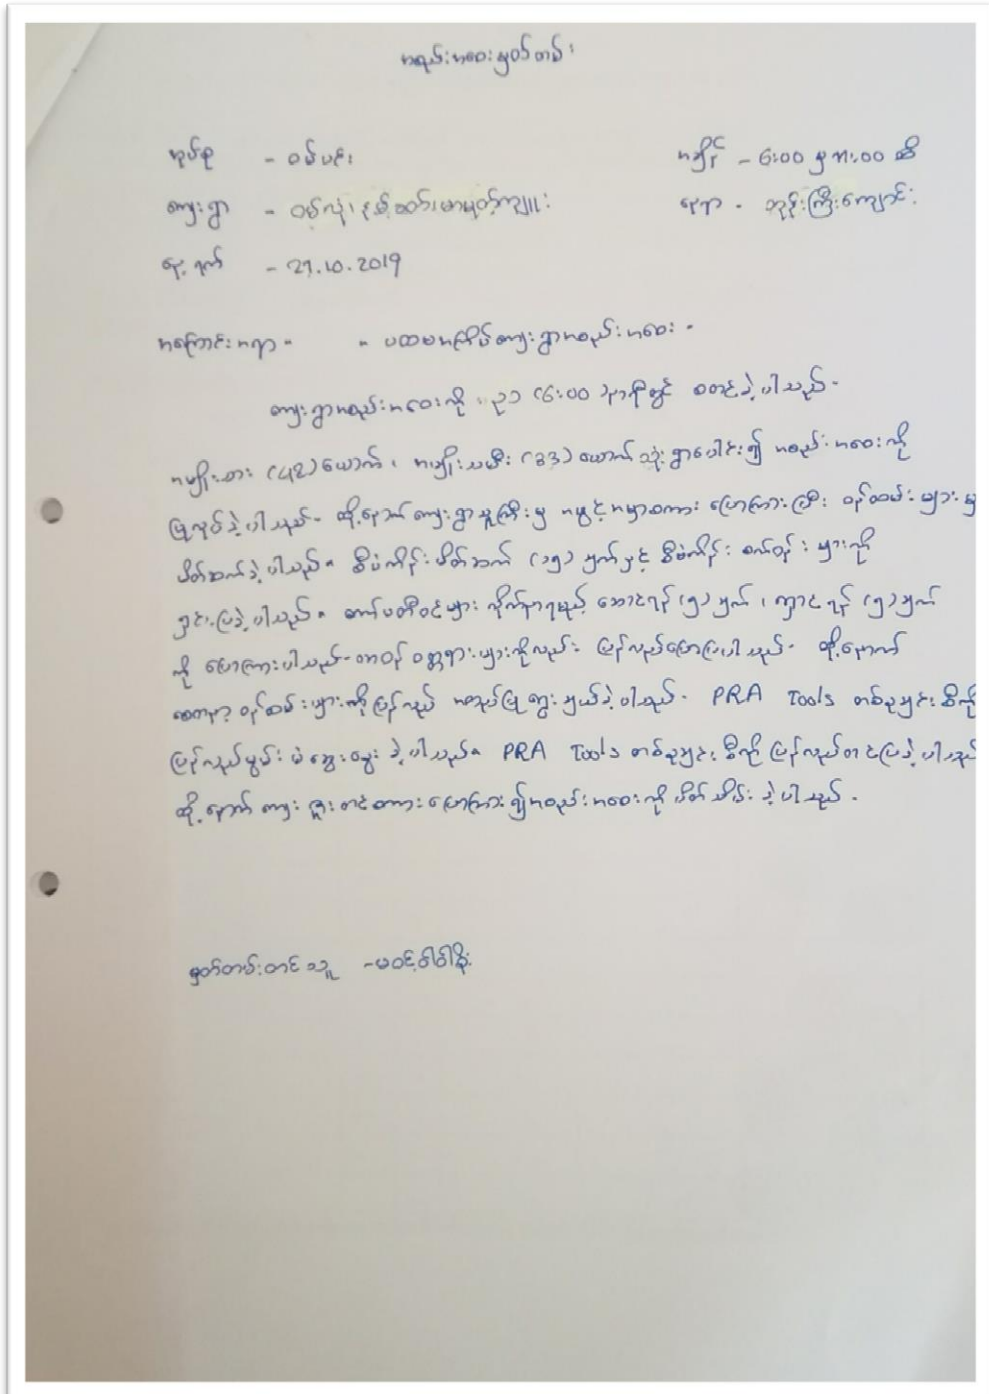 အစည်းအဝေးမှတ်တမ်း
အုပ်စု - ဝမ်ပင်း အချိန် - 6:00 မှ 11:00 ထိ
ကျေးရွာ - ဝမ်လုံ၊ နမ့်ဆတ်၊ မာမုတ်ကျူး နေရာ - ဘုန်းကြီးကျောင်း
နေ့ရက် - 27.10.2019
အကြောင်းအရာ - - ပထမအကြိမ်ကျေးရွာအစည်းအဝေး -
ကျေးရွာအစည်းအဝေးကို ည (6:00) နာရီတွင် စတင်ခဲ့ပါသည်-
အမျိုးသား (၄၃) ယောက်၊ အမျိုးသမီး (၃၃) ယောက် သုံးရွာပေါင်း၍ အစည်းအဝေးကို
ပြုလုပ်ခဲ့ပါသည်- ထို့နောက် ကျေးရွာသူကြီးမှ အဖွင့်အမှာစကား ပြောကြားပြီး ဝန်ထမ်းများမှ
မိတ်ဆက်ခဲ့ပါသည်။ စီမံကိန်းမိတ်ဆက် (၁၅) ချက်နှင့် စီမံကိန်း စက်ဝန်းများကို
ရှင်းပြခဲ့ပါသည်။ ကော်မတီဝင်များ လိုက်နာရမည့် ဆောင်ရန် (၅) ချက်၊ ရှောင်ရန် (၅) ချက်
ကို ပြောကြားပါသည်- တာဝန် ဝတ္တရားများကိုလည်း ပြန်လည်ပြောပြပါသည်- ထို့နောက်
စေတနာ့ ဝန်ထမ်းများကိုပြန်လည် အတည်ပြုရွေးချယ်ခဲ့ပါသည်- PRA Tools တစ်ခုချင်းစီကို
ပြန်လည်မွမ်းမံဆွေးနွေးခဲ့ပါသည်။ PRA Tools တစ်ခုချင်းစီကို ပြန်လည်တင်ပြခဲ့ပါသည်
ထို့နောက် ကျေးဇူးတင်စကားပြောကြား၍ အစည်းအဝေးကို ပိတ်သိမ်းခဲ့ပါသည်-
မှတ်တမ်းတင်သူ -မဝင့်ဝါဝါခိုး